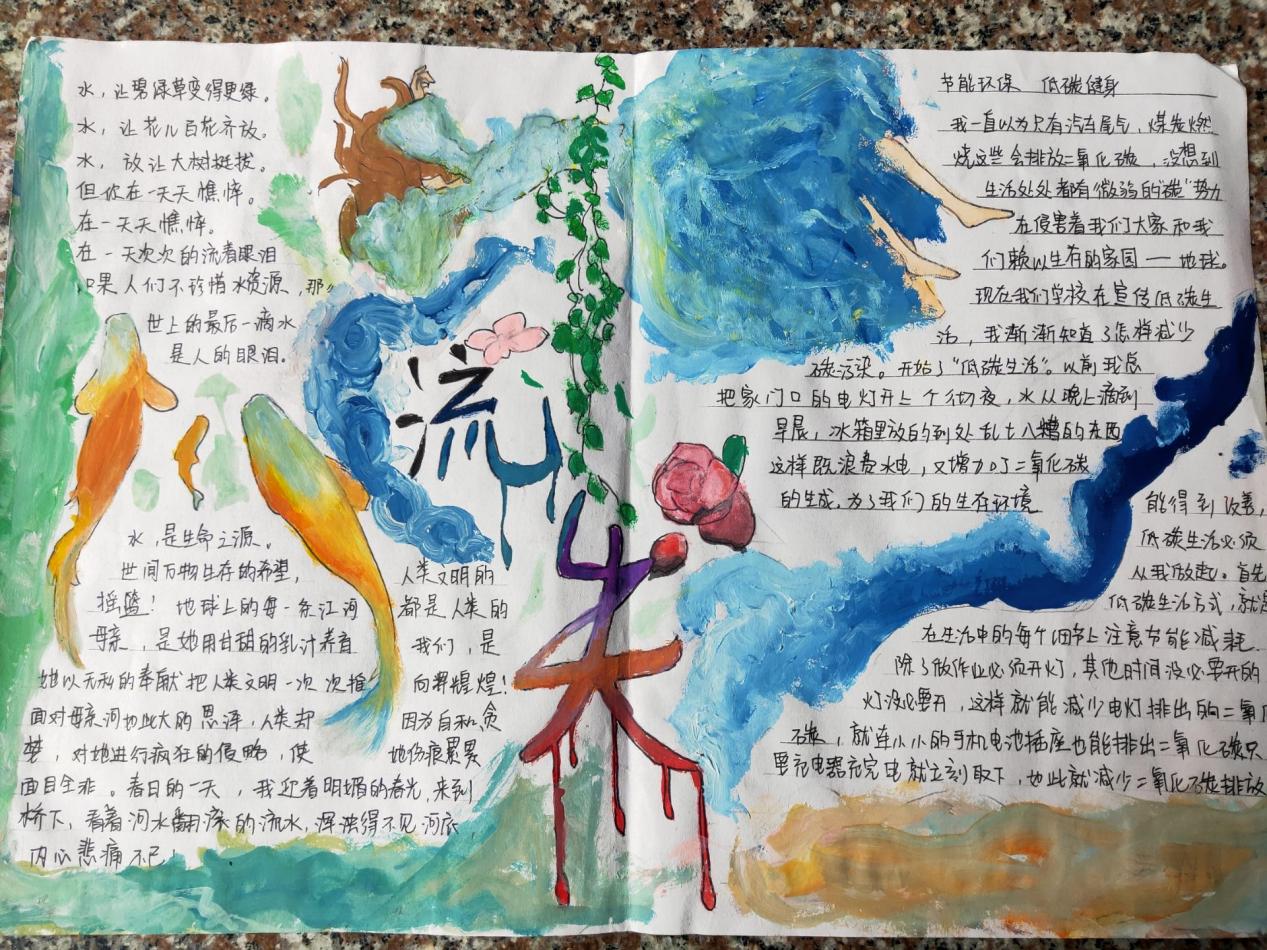 水，让碧绿草变得更绿。
水，让花儿百花齐放。
水，放让大树挺拔。
但你在一天天憔悴。
在一天天憔悴。
在一天次次的流着眼泪
果人们不珍惜水资源，那么
世上的最后一滴水
是人的眼泪。
流
失
水，是生命之源。
世间万物生存的希望，
摇篮！地球上的每一条江河
母亲，是她用甘甜的乳汁养育
她以无私的奉献把人类文明一次次推
面对母亲河如此大的恩泽，人类却
梦，对她进行疯狂的侵略，使
面目全非。春日的一天，我迎着明媚的春光，来到
桥下，看着河水翻滚的流水，浑浊得不见河底，
内心悲痛不已！
人类文明的
都是人类的
我们，是
向辉煌！
因为自和贪
她伤痕累累
节能环保 低碳健身
我一直以为只有汽车尾气，煤炭燃
烧这些会排放二氧化碳，没想到
生活处处都有"微弱的碳"势力
在侵害着我们大家和我
们赖以生存的家园——地球。
现在我们学校在宣传低碳生
活，我渐渐知道了怎样减少
碳污染。开始了"低碳生活"。以前我总
把家门口的电灯开上个彻夜，水从晚上滴到
早晨，冰箱里放的到处乱七八糟的东西
这样既浪费水电，又增加了二氧化碳
的生成。为了我们的生存环境
能得到改善，
低碳生活必须
从我做起。首先
低碳生活方式，就是
在生活中的每个细节上注意节能减耗.
除了做作业必须开灯，其他时间没必要开的
灯没必要开，这样就能减少电灯排出的二氧化
碳，就连小小的手机电池插座也能排出二氧化碳只
要充电器充完电就立刻取下，如此就减少二氧化碳排放